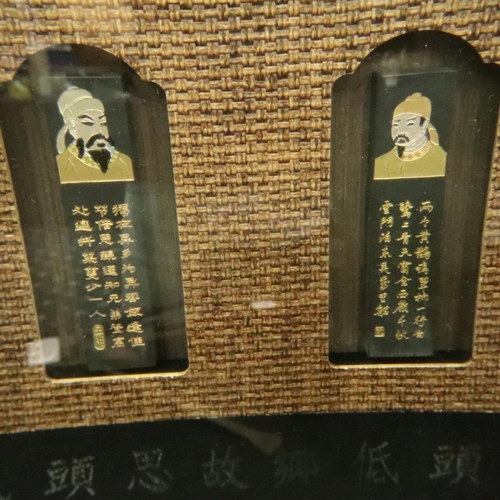 兩个黃鸝鳴翠柳一行白
鷺上青天窗含西嶺千秋
雪門泊東吳萬里船
獨在異鄉為異客每逢佳
節倍思親遙知兄弟登高
處遍插茱萸少一人
頭思故鄉低頭